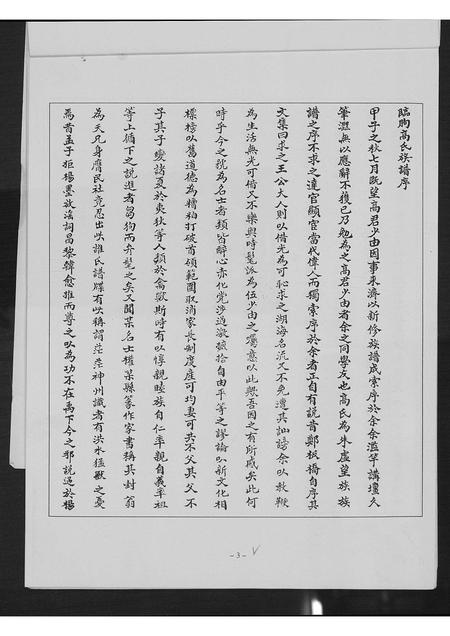 臨朐高氏族譜序
甲子之秋七月既望高君少由因事來濟以新修族譜成索序於余余濫竽講壇久
筆澀無以應辭不獲已乃勉為之高君少由者余之同學友也高氏為朱虛望族族
譜之序不求之達官顯宦當代偉人而獨索序於余者正自有說昔鄭板橋自序其
文集曰求之王公大人則以借光為可恥求之湖海名流又不免遭其訕謗余以教鞭
為生活無光可借又不樂與時髦派為伍少由之囑意以此歟吾因之有所感矣此何
時乎今之號為名士者類皆醉心赤化黨涉過激掇拾自由平等之謬論以新文化相
標榜以舊道德為糟粕打破首領範圍取消家長制度產可均妻可共不父其父不
子其子變諸夏於夷狄等人類於禽獸斯時有以惇親睦族自仁率親自義率祖
等上循下之說進者芻狗而弁髦之矣又聞某名士權某縣篆作家書稱其封翁
為天兄身膺民社竟忍出此誰氏譜牒有此稱謂茫茫神州識者有洪水猛獸之憂
焉昔孟子拒楊墨放淫詞昌黎韓愈推而尊之以為功不在禹下今之邪說過於楊
-3-